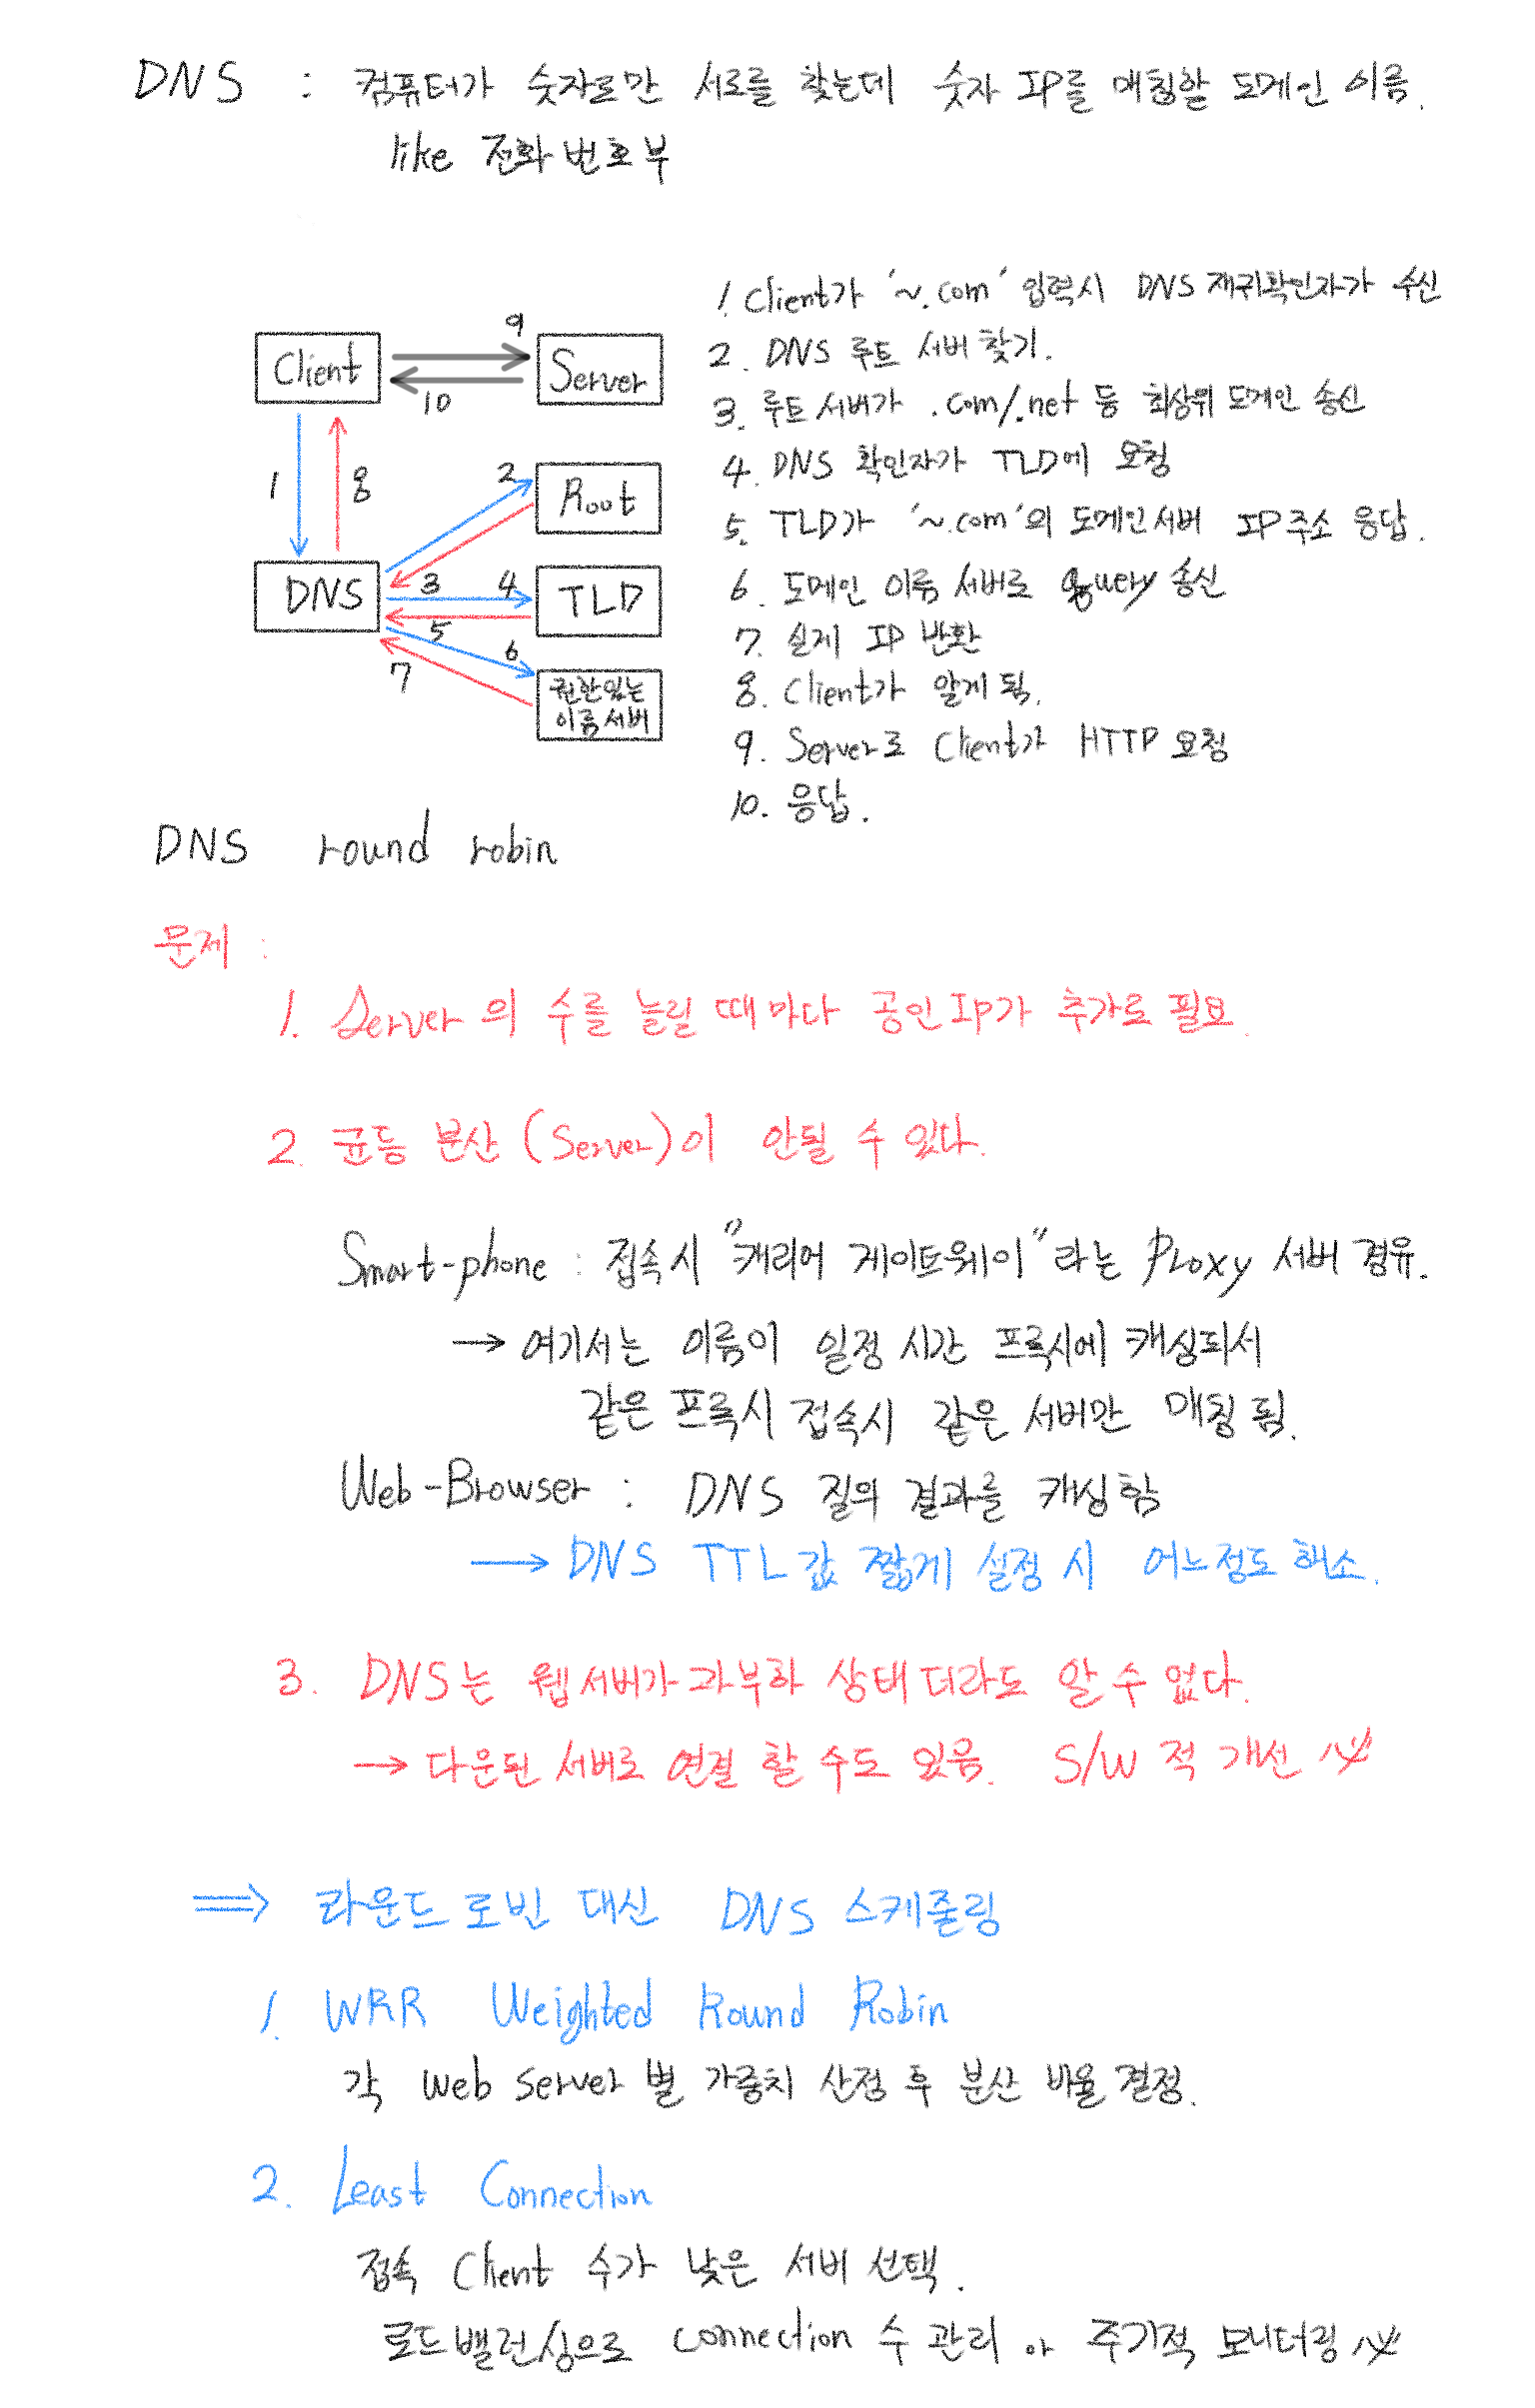 DNS : 컴퓨터가 숫자로만 서로를 찾는데 숫자 IP를 매칭할 도메인 이름.
like 전화번호부
Client
9
Server
10
1
8
2
Root
DNS
3
4
TLD
5
6
7
권한있는
이름서버
1. Client가 '~.com' 입력시 DNS 재귀확인자가 수신
2. DNS 루트 서버 찾기.
3. 루트 서버가 .com/.net 등 최상위 도메인 송신
4. DNS 확인자가 TLD에 요청
5. TLD가 '~.com'의 도메인서버 IP주소 응답.
6. 도메인 이름 서버로 query 송신
7. 실제 IP 반환
8. Client가 알게 됨.
9. Server로 Client가 HTTP 요청
10. 응답.
DNS round robin
문제 :
1. Server의 수를 늘릴 때마다 공인IP가 추가로 필요.
2. 균등 분산 (Server)이 안될 수 있다.
Smart-phone : 접속시 "캐리어 게이트웨이"라는 Proxy 서버 경유.
→ 여기서는 이름이 일정 시간 프록시에 캐싱되서
같은 프록시 접속시 같은 서버만 매칭됨.
Web-Browser : DNS 질의 결과를 캐싱함
→ DNS TTL값 짧게 설정 시 어느정도 해소.
3. DNS는 웹서버가 과부하 상태더라도 알 수 없다.
→ 다운된 서버로 연결 할 수도 있음. S/W 적 개선
⇒ 라운드 로빈 대신 DNS 스케줄링
1. WRR Weighted Round Robin
각 web server 별 가중치 산정 후 분산 비율 결정.
2. Least Connection
접속 Client 수가 낮은 서버 선택.
로드밸런싱으로 connection 수 관리 or 주기적 모니터링